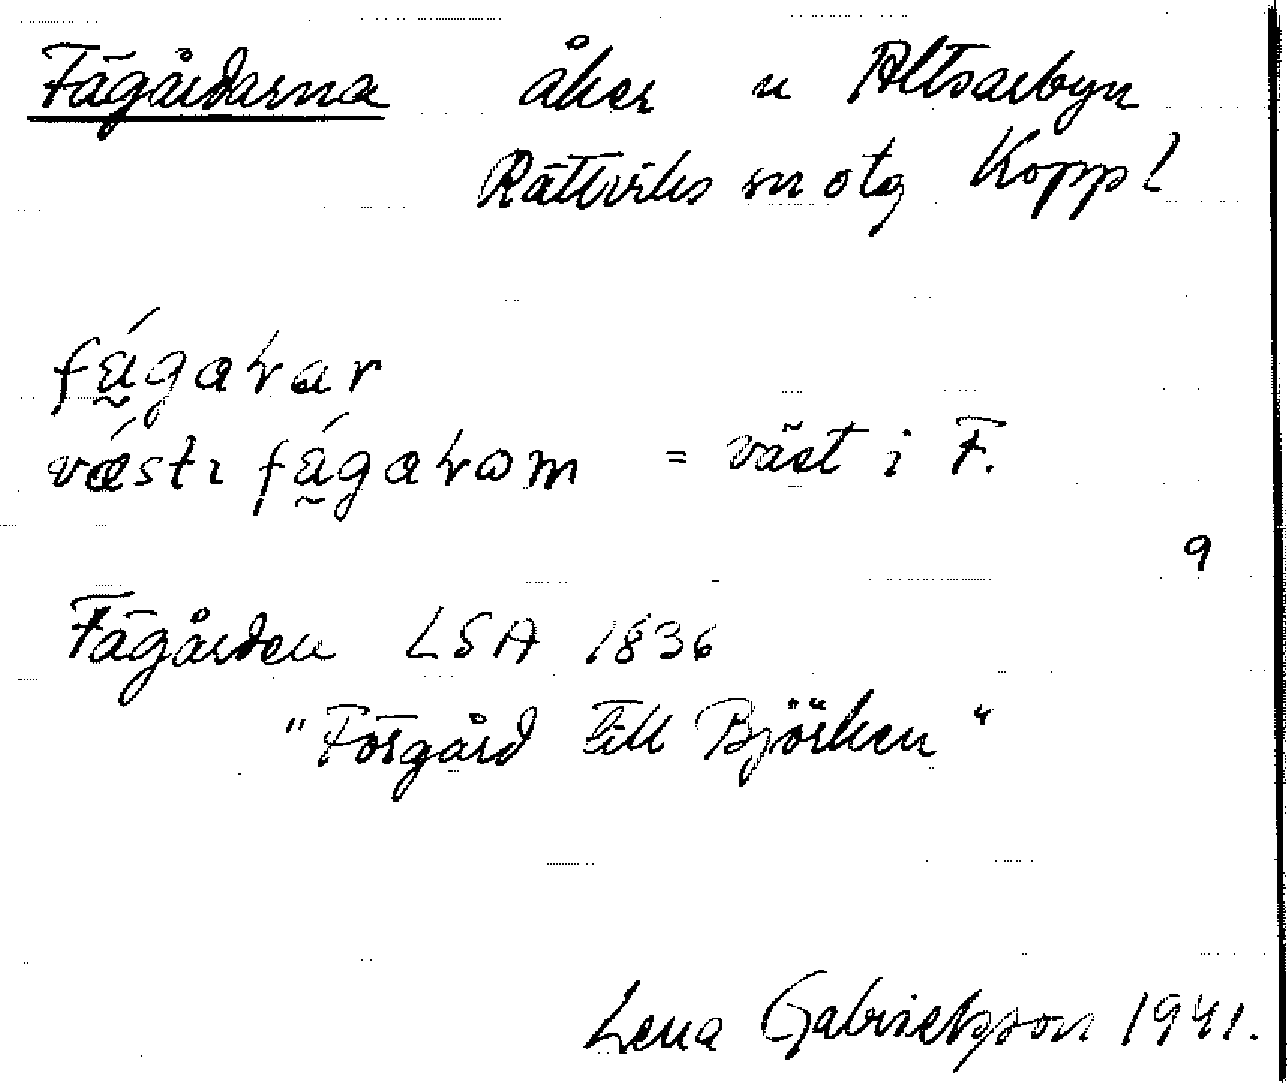 Fägårdarna åker u Altsarbyn
Rättviks sn o tg Kopp l
fá̰garar
vǽstɩ fá̰garωm = väst i F.
9
Fägården LSA 1836
"Förgård till Björken"
Lena Gabrielsson 1941.